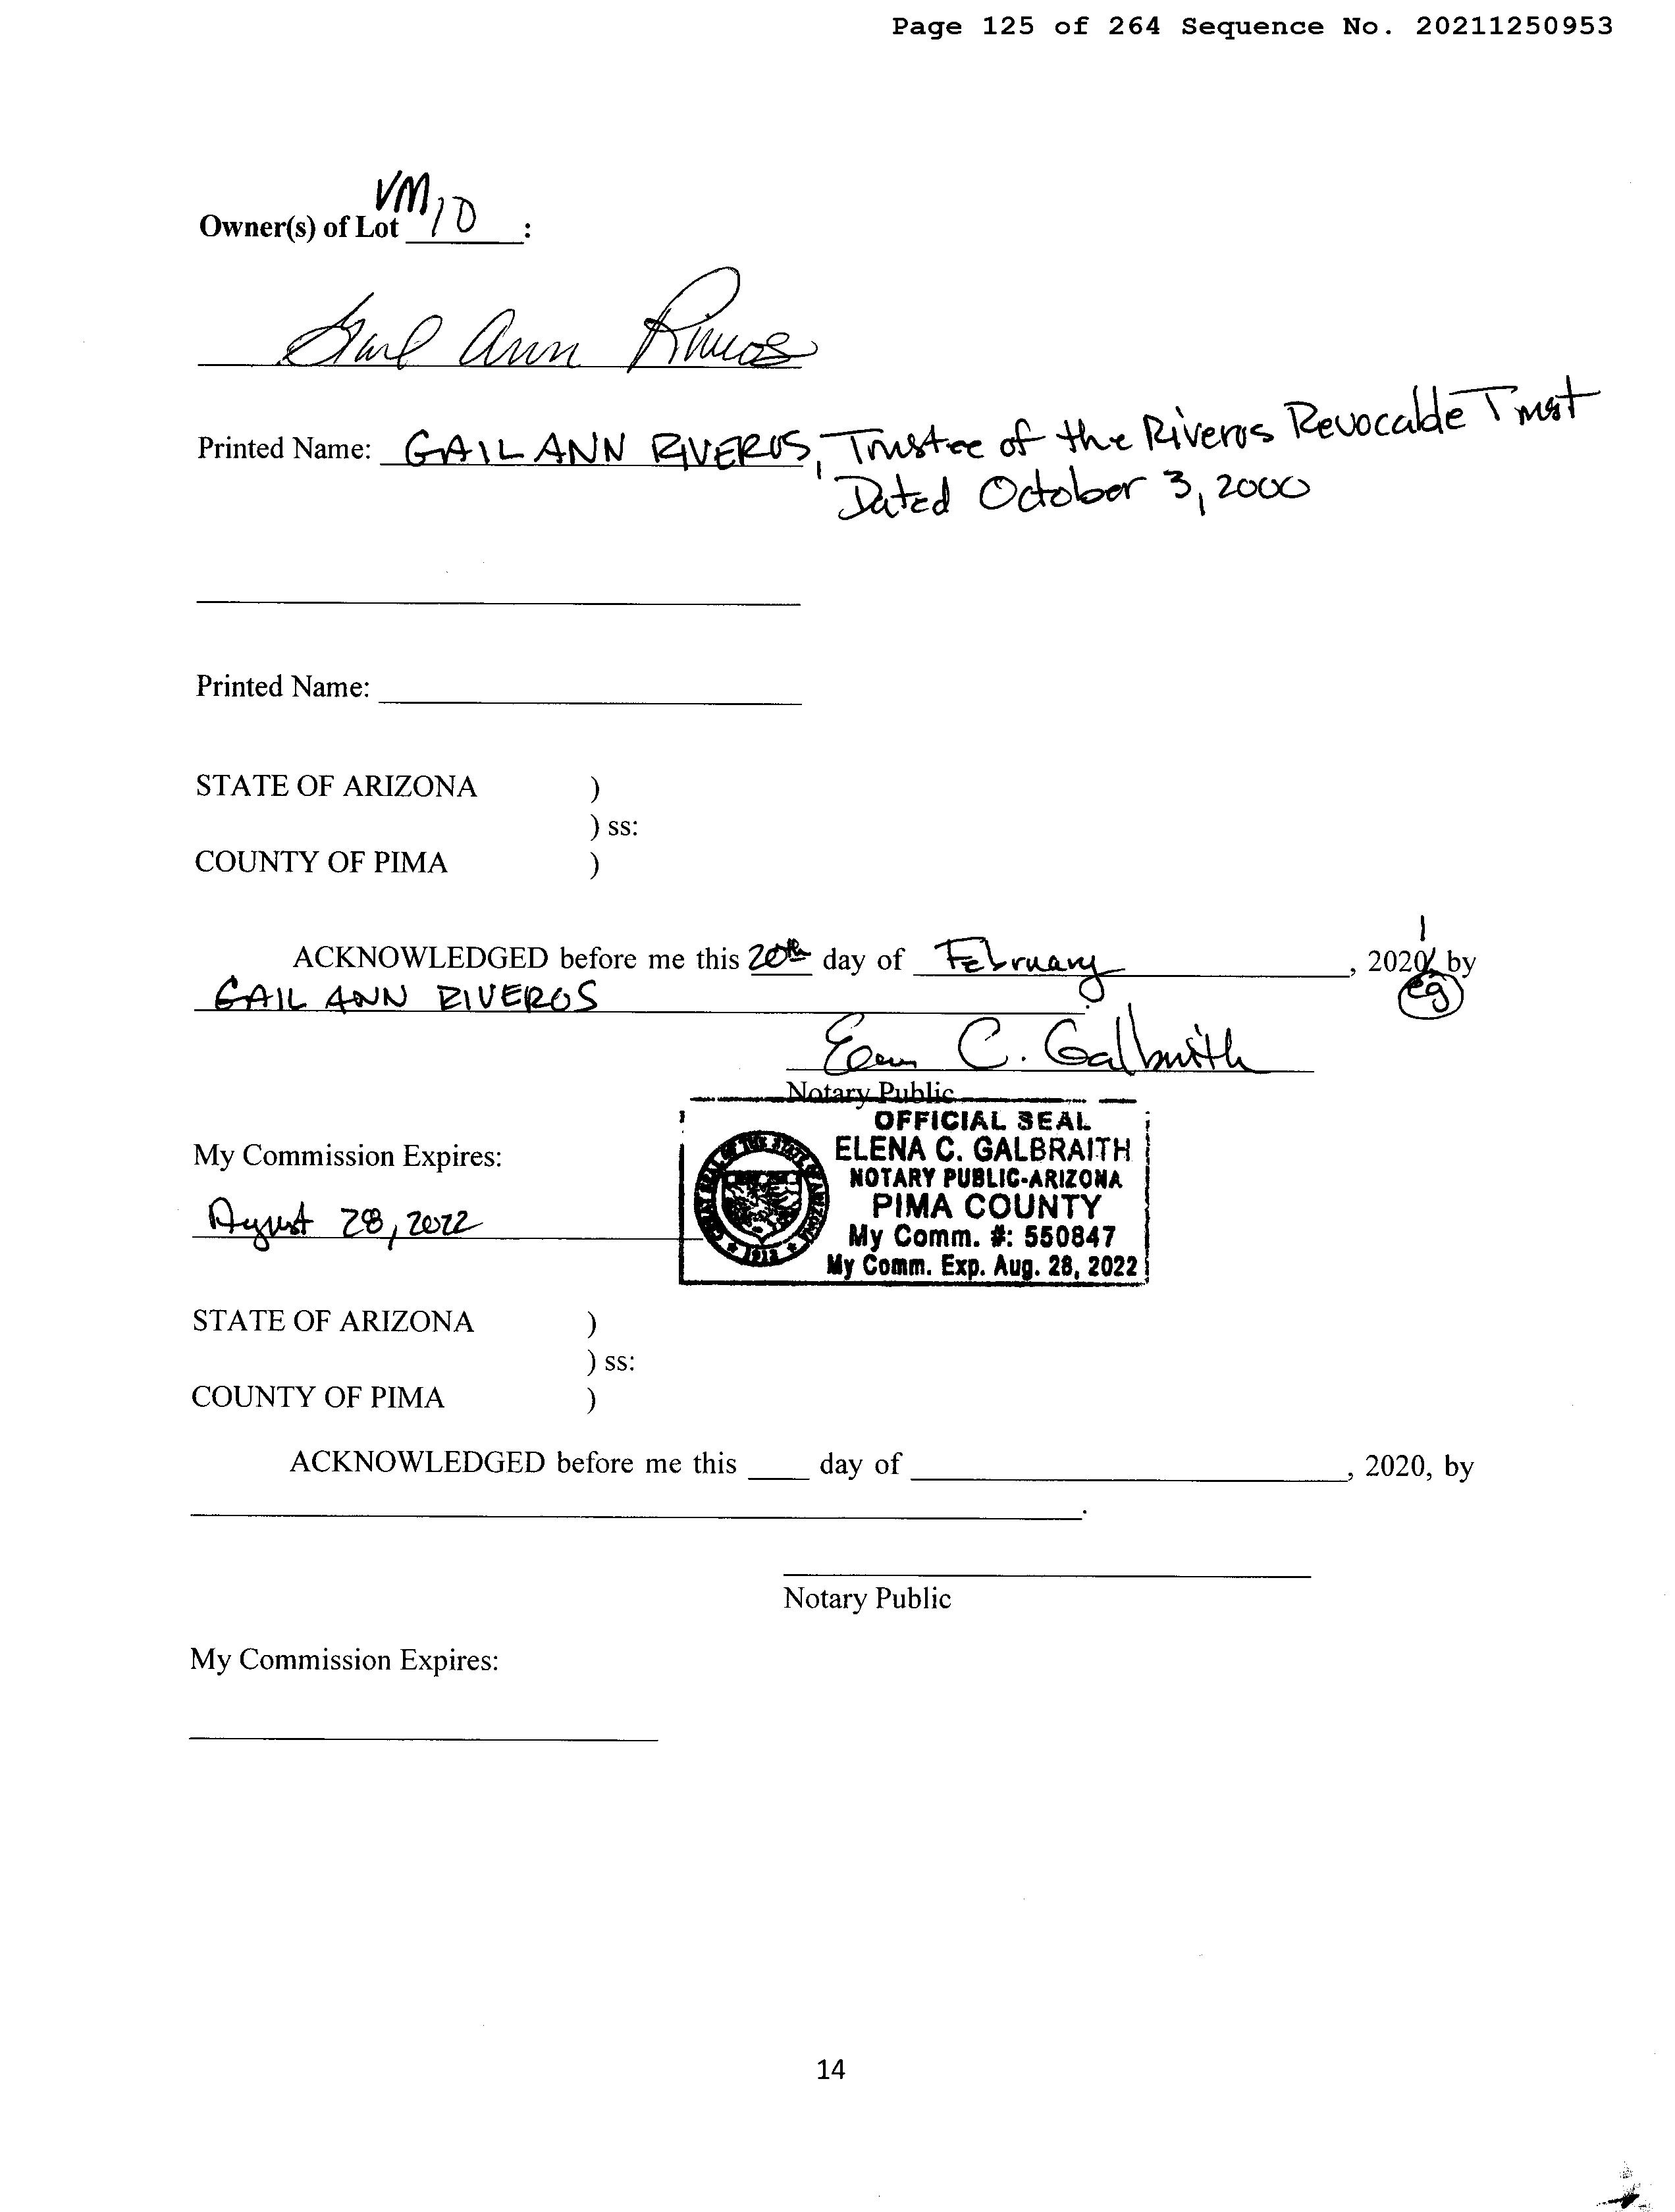 Page 125 of 264 Sequence No. 20211250953
VM10
Owner(s) of Lot ________:
Gail Ann Riveros
Printed Name: GAIL ANN RIVEROS, Trustee of the Riveros Revocable Trust
Dated October 3, 2000
Printed Name:
STATE OF ARIZONA )
) ss:
COUNTY OF PIMA )
1
ACKNOWLEDGED before me this 20th day of February, 2020, by
GAIL ANN RIVEROS. eg
Elena C. Galbraith
Notary Public
OFFICIAL SEAL
ELENA C. GALBRAITH
NOTARY PUBLIC-ARIZONA
PIMA COUNTY
My Comm. #: 550847
My Comm. Exp. Aug. 28, 2022
GREAT SEAL OF THE STATE OF ARIZONA
1912
My Commission Expires:
August 28, 2022
STATE OF ARIZONA )
) ss:
COUNTY OF PIMA )
ACKNOWLEDGED before me this ____ day of ________, 2020, by
________.
Notary Public
My Commission Expires:
14